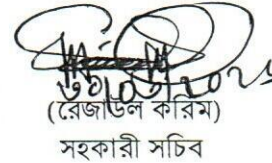 (রেজাউল করিম)
সহকারী সচিব